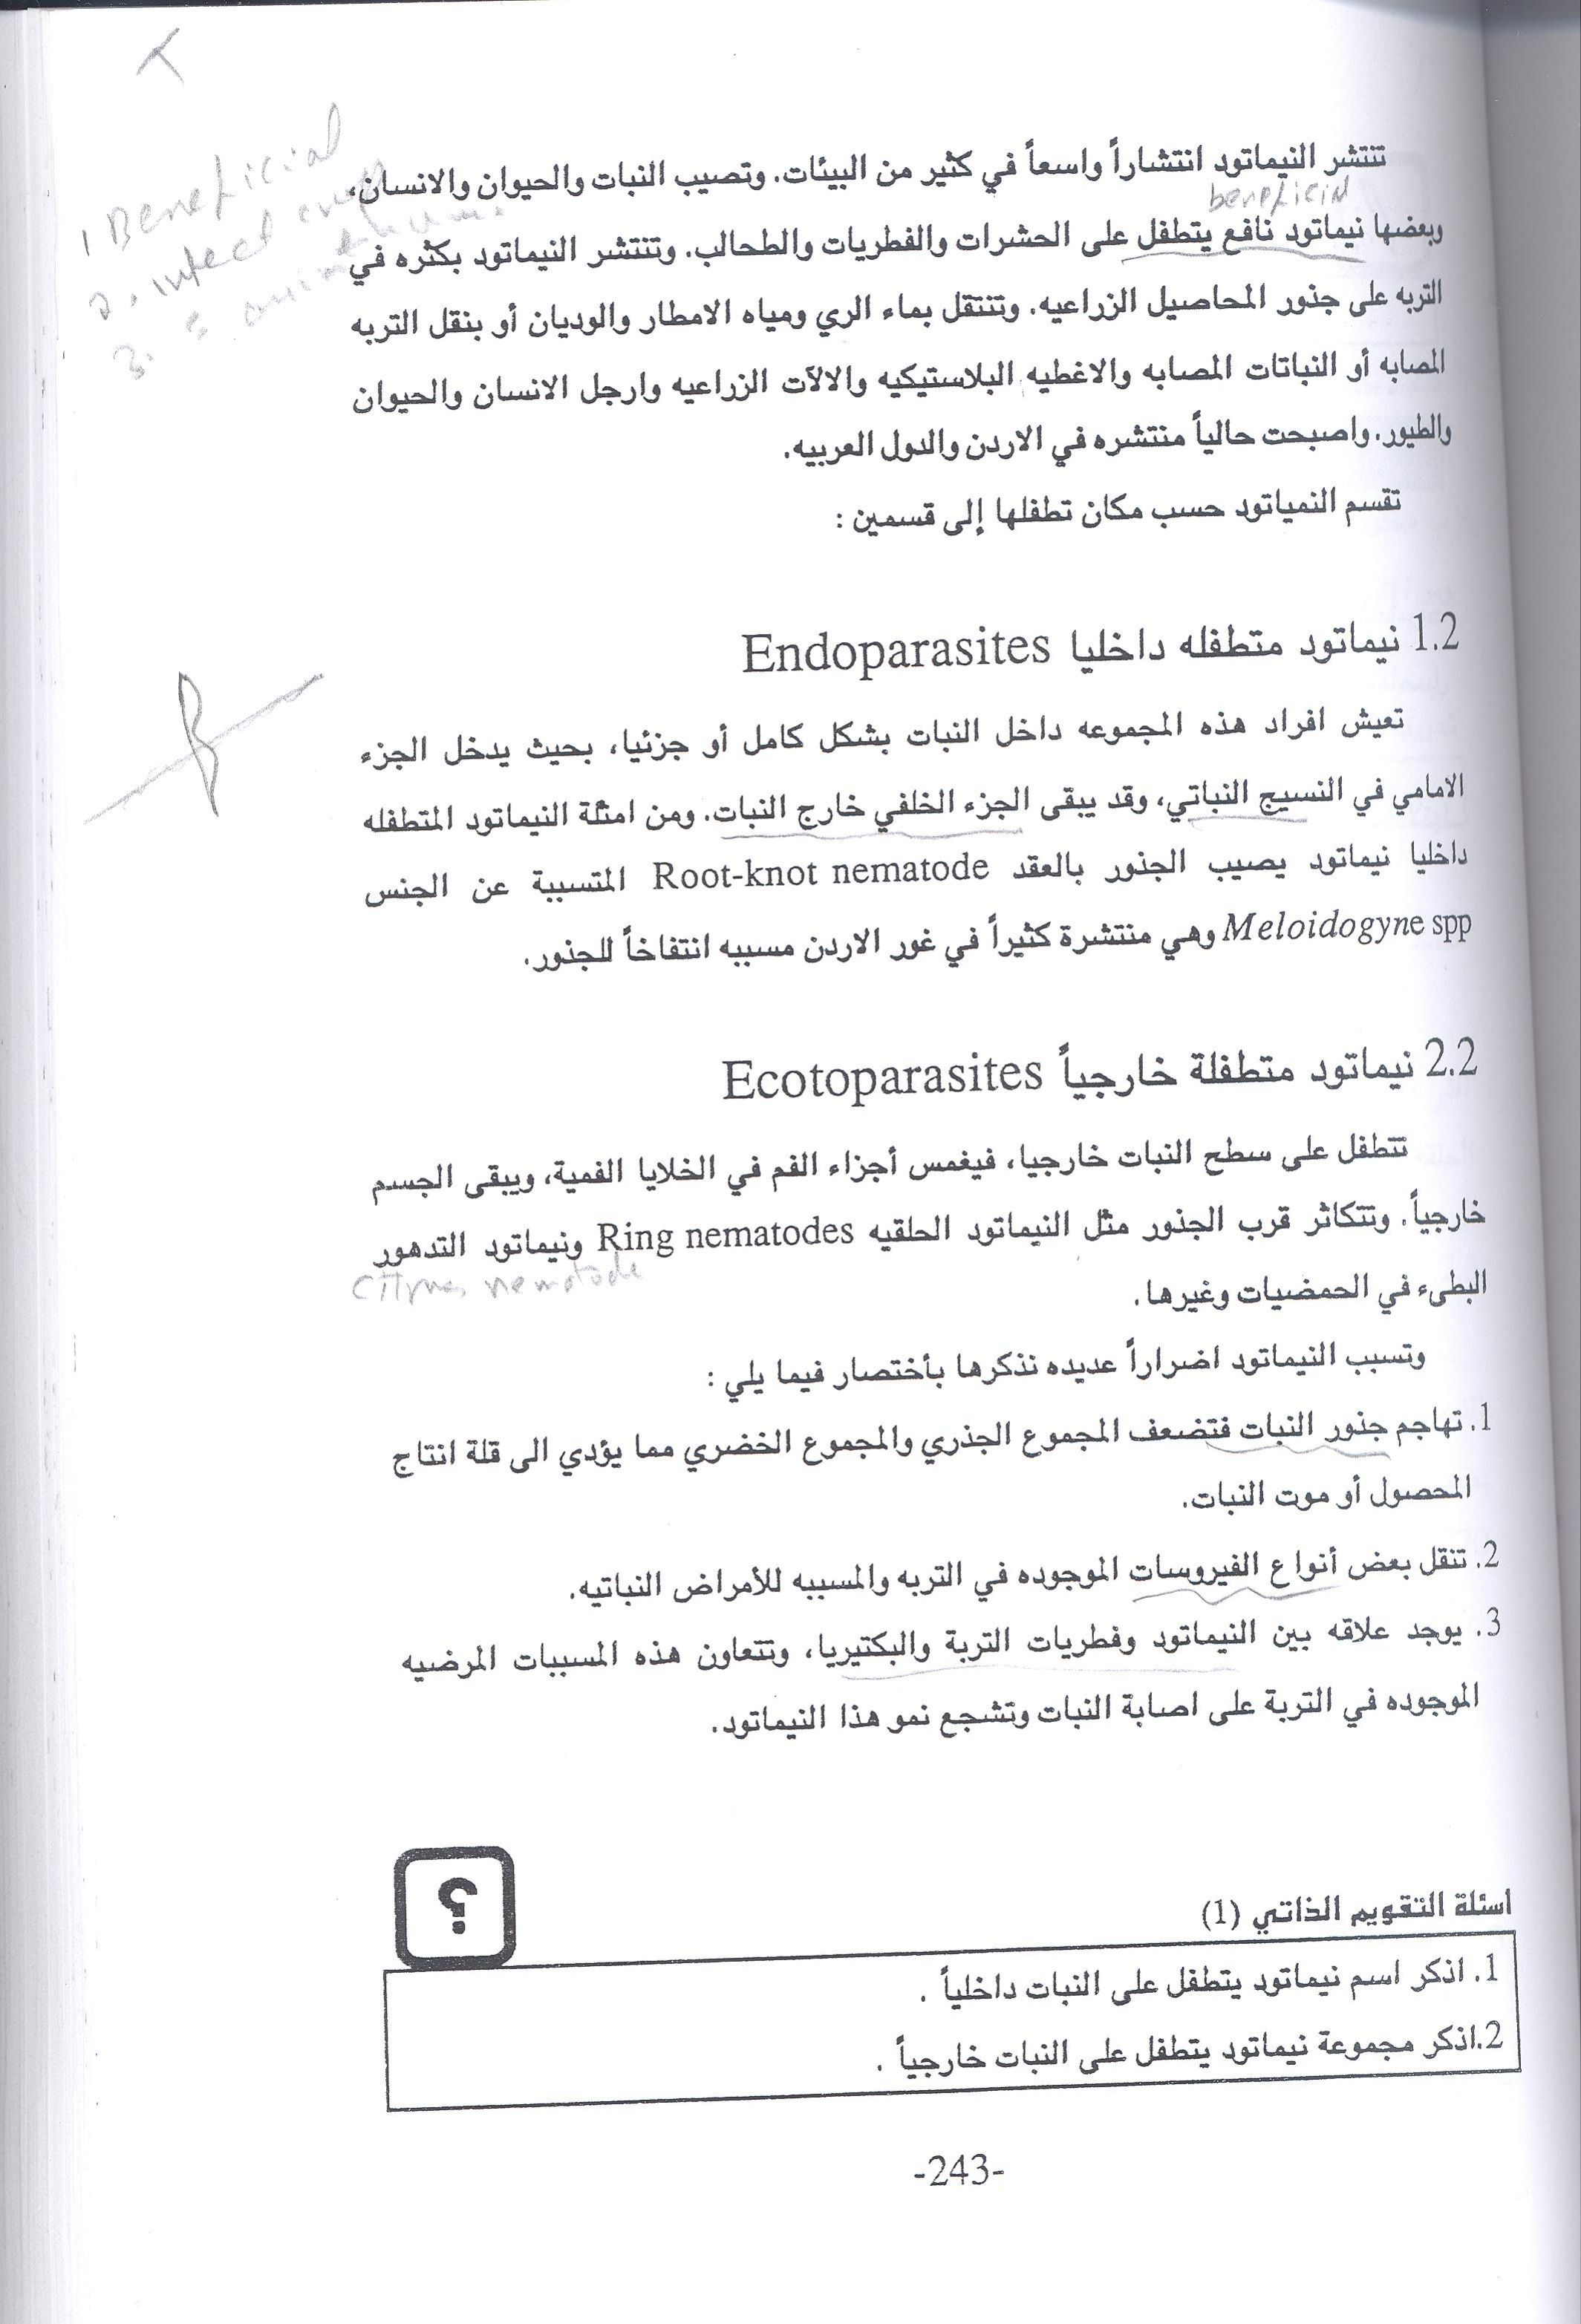 1 Beneficial
2. infect
3.
تنتشر النيماتود انتشاراً واسعاً في كثير من البيئات. وتصيب النبات والحيوان والانسان،
وبعضها نيماتود نافع يتطفل على الحشرات والفطريات والطحالب. وتنتشر النيماتود بكثره في
التربه على جذور المحاصيل الزراعيه. وتنتقل بماء الري ومياه الامطار والوديان أو بنقل التربه
المصابه أو النباتات المصابه والاغطيه البلاستيكيه والالآت الزراعيه وارجل الانسان والحيوان
والطيور. واصبحت حالياً منتشره في الاردن والدول العربيه.
تقسم النمياتود حسب مكان تطفلها إلى قسمين :
1.2 نيماتود متطفله داخليا Endoparasites
تعيش افراد هذه المجموعه داخل النبات بشكل كامل أو جزئيا، بحيث يدخل الجزء
الامامي في النسيج النباتي، وقد يبقى الجزء الخلفي خارج النبات. ومن امثلة النيماتود المتطفله
داخليا نيماتود يصيب الجذور بالعقد Root-knot nematode المتسببة عن الجنس
Meloidogyne spp وهي منتشرة كثيراً في غور الاردن مسببه انتفاخاً للجذور.
2.2 نيماتود متطفلة خارجياً Ecotoparasites
تتطفل على سطح النبات خارجيا، فيغمس أجزاء الفم في الخلايا الفمية، ويبقى الجسم
خارجياً. وتتكاثر قرب الجذور مثل النيماتود الحلقيه Ring nematodes ونيماتود التدهور
nematode
البطىء في الحمضيات وغيرها.
وتسبب النيماتود اضراراً عديده نذكرها بأختصار فيما يلي :
1. تهاجم جذور النبات فتضعف المجموع الجذري والمجموع الخضري مما يؤدي الى قلة انتاج
المحصول أو موت النبات.
2. تنقل بعض أنواع الفيروسات الموجوده في التربه والمسببه للأمراض النباتيه.
3. يوجد علاقه بين النيماتود وفطريات التربة والبكتيريا، وتتعاون هذه المسببات المرضيه
الموجوده في التربة على اصابة النبات وتشجع نمو هذا النيماتود.
؟
اسئلة التقويم الذاتي (1)
1. اذكر اسم نيماتود يتطفل على النبات داخلياً .
2.اذكر مجموعة نيماتود يتطفل على النبات خارجياً .
-243-